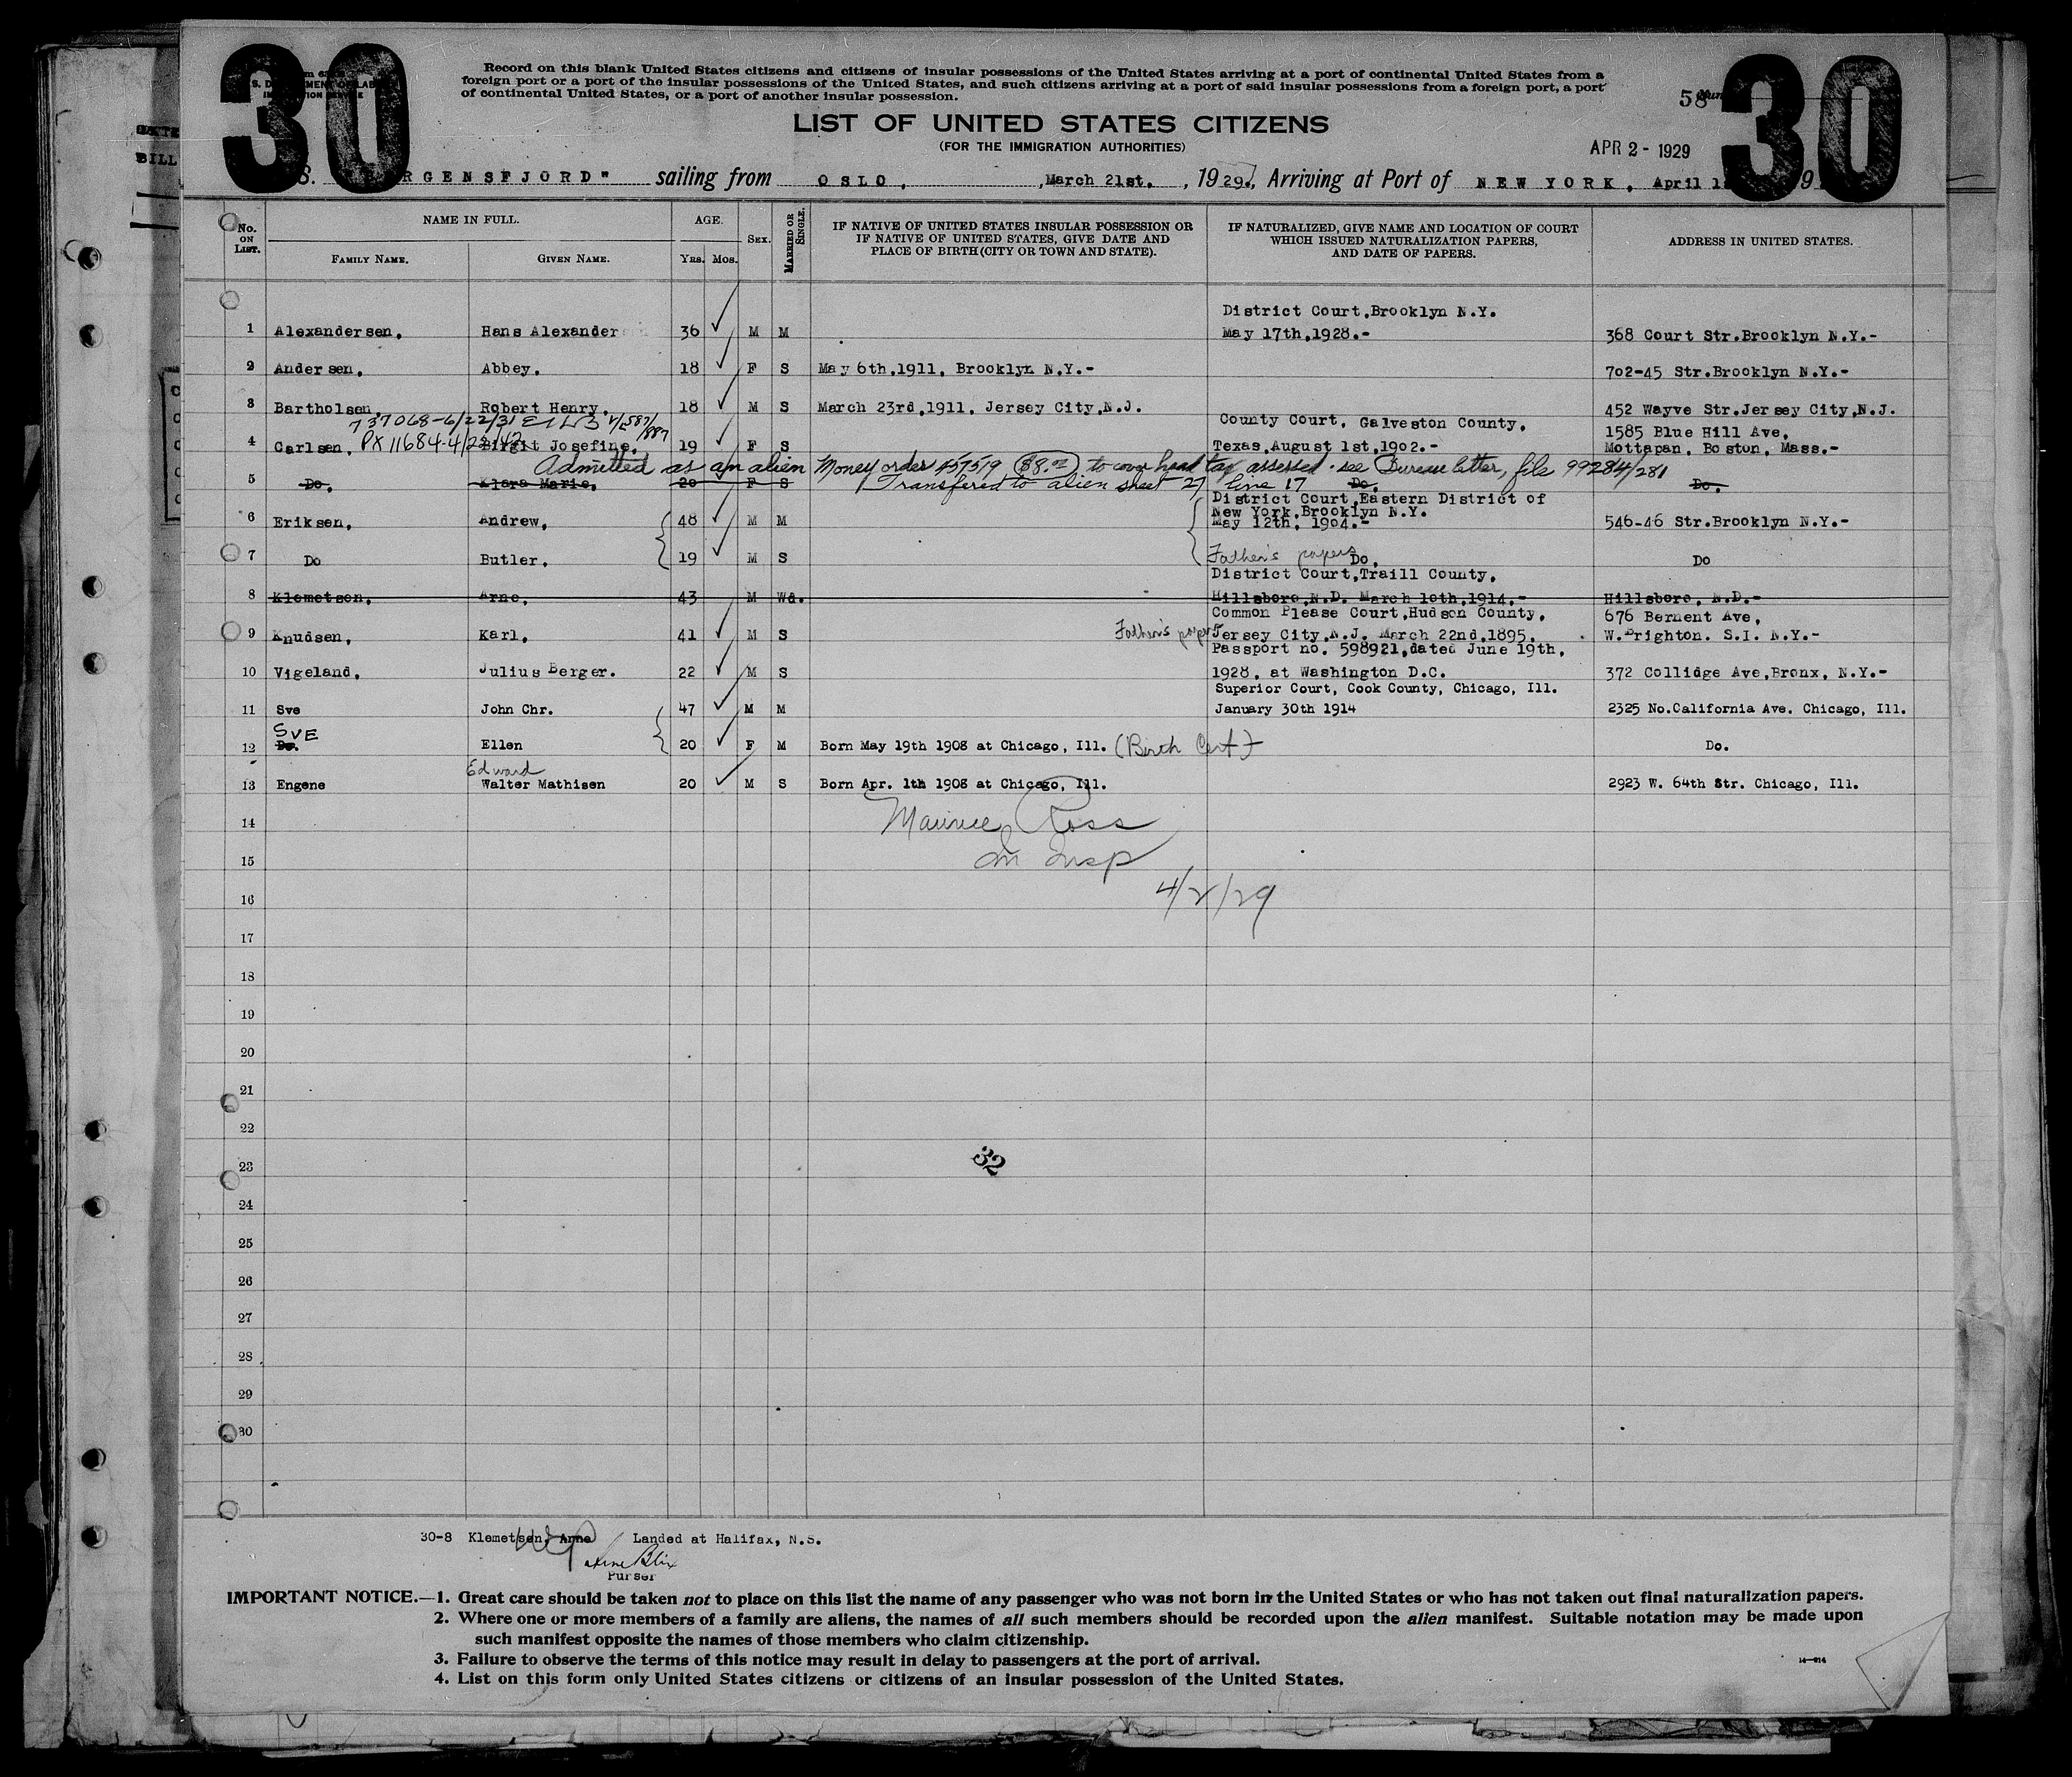 30
30
Record on this blank United States citizens and citizens of insular possessions of the United States arriving at a port of continental United States from a
foreign port or a port of the insular possessions of the United States, and such citizens arriving at a port of said insular possessions from a foreign port, a port
of continental United States, or a port of another insular possession.
58
LIST OF UNITED STATES CITIZENS
(FOR THE IMMIGRATION AUTHORITIES)
APR 2 - 1929
S. RGENSFJORD" sailing from OSLO, March 21st, 1929, Arriving at Port of NEW YORK, April
No. ON LIST. NAME IN FULL. AGE. SEX. MARRIED OR SINGLE. IF NATIVE OF UNITED STATES INSULAR POSSESSION OR IF NATIVE OF UNITED STATES, GIVE DATE AND PLACE OF BIRTH (CITY OR TOWN AND STATE). IF NATURALIZED, GIVE NAME AND LOCATION OF COURT WHICH ISSUED NATURALIZATION PAPERS, AND DATE OF PAPERS. ADDRESS IN UNITED STATES.
FAMILY NAME. GIVEN NAME. YRS. MOS.
District Court, Brooklyn N.Y.
1 Alexandersen, Hans Alexander 36 M M May 17th, 1928.- 368 Court Str. Brooklyn N.Y.-
2 Andersen, Abbey. 18 F S May 6th, 1911, Brooklyn N.Y.- 702-45 Str. Brooklyn N.Y.-
3 Bartholsen, Robert Henry, 18 M S March 23rd, 1911, Jersey City, N.J. 452 Wayve Str. Jersey City, N.J.
737068-6/22/31
County Court, Galveston County, 1585 Blue Hill Ave,
4 Carlsen, PX 11684-4/28/42 Birgit Josefine, 19 F S Texas, August 1st, 1902.- Mottapan, Boston, Mass.-
Admitted as an alien Money order 457519 $8.00 to cover head tax assessed - see Bureau letter, file 99284/281
5 Do, Klara Marie, 20 F S Transfered to alien sheet 27 line 17 Do, Do.
District Court, Eastern District of
New York, Brooklyn N.Y.
6 Eriksen, Andrew, 48 M M May 12th, 1904.- 546-46 Str. Brooklyn N.Y.-
7 Do Butler, 19 M S Father's papers Do, Do
District Court, Traill County,
8 Klemetsen, Arne, 43 M Wd. Hillsboro, N.D. March 10th, 1914.- Hillsboro, N.D.-
Common Please Court, Hudson County, 676 Bernent Ave,
9 Knudsen, Karl, 41 M S Father's papers Jersey City, N.J. March 22nd, 1895, W. Brighton. S.I. N.Y.-
Passport no. 598921, dated June 19th,
10 Vigeland, Julius Berger. 22 M S 1928, at Washington D.C. 372 Collidge Ave, Bronx, N.Y.-
Superior Court, Cook County, Chicago, Ill.
11 Sve John Chr. 47 M M January 30th 1914 2325 No. California Ave. Chicago, Ill.
SVE
12 Do. Ellen 20 F M Born May 19th 1908 at Chicago, Ill. (Birth Cert) Do.
Edward
13 Engene Walter Mathisen 20 M S Born Apr. 1th 1908 at Chicago, Ill. 2923 W. 64th Str. Chicago, Ill.
14 Maurice Ross
15 Im Insp
16 4/2/29
17
18
19
20
21
22
23 32
24
25
26
27
28
29
30
30-8 Klemetsen, Arne Landed at Halifax, N.S.
Arne Blix
Purser
IMPORTANT NOTICE.—1. Great care should be taken not to place on this list the name of any passenger who was not born in the United States or who has not taken out final naturalization papers.
2. Where one or more members of a family are aliens, the names of all such members should be recorded upon the alien manifest. Suitable notation may be made upon
such manifest opposite the names of those members who claim citizenship.
3. Failure to observe the terms of this notice may result in delay to passengers at the port of arrival.
4. List on this form only United States citizens or citizens of an insular possession of the United States.
14—914